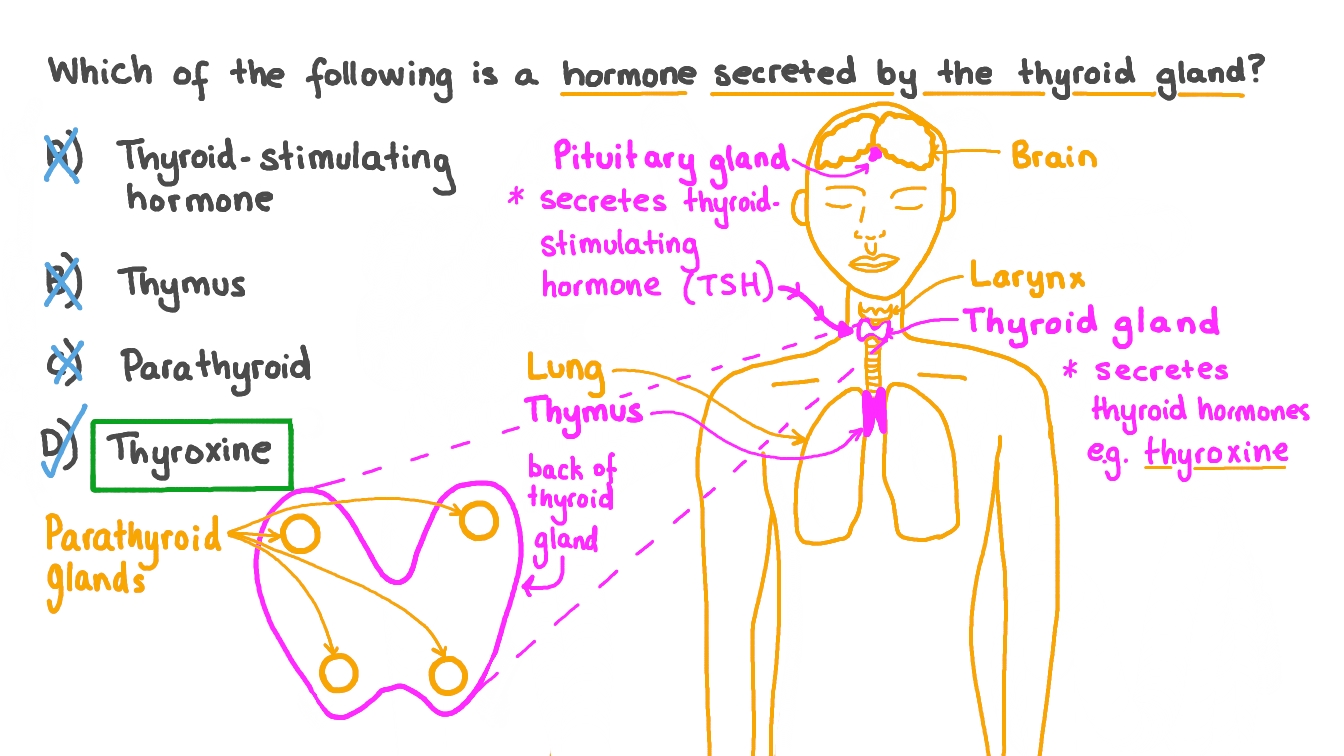 Which of the following is a hormone secreted by the thyroid gland?
A) Thyroid-stimulating
hormone
B) Thymus
C) Parathyroid
D) Thyroxine
Pituitary gland
* secretes thyroid-
stimulating
hormone (TSH)
Brain
Larynx
Thyroid gland
* secretes
thyroid hormones
e.g. thyroxine
Lung
Thymus
back of
thyroid
gland
Parathyroid
glands